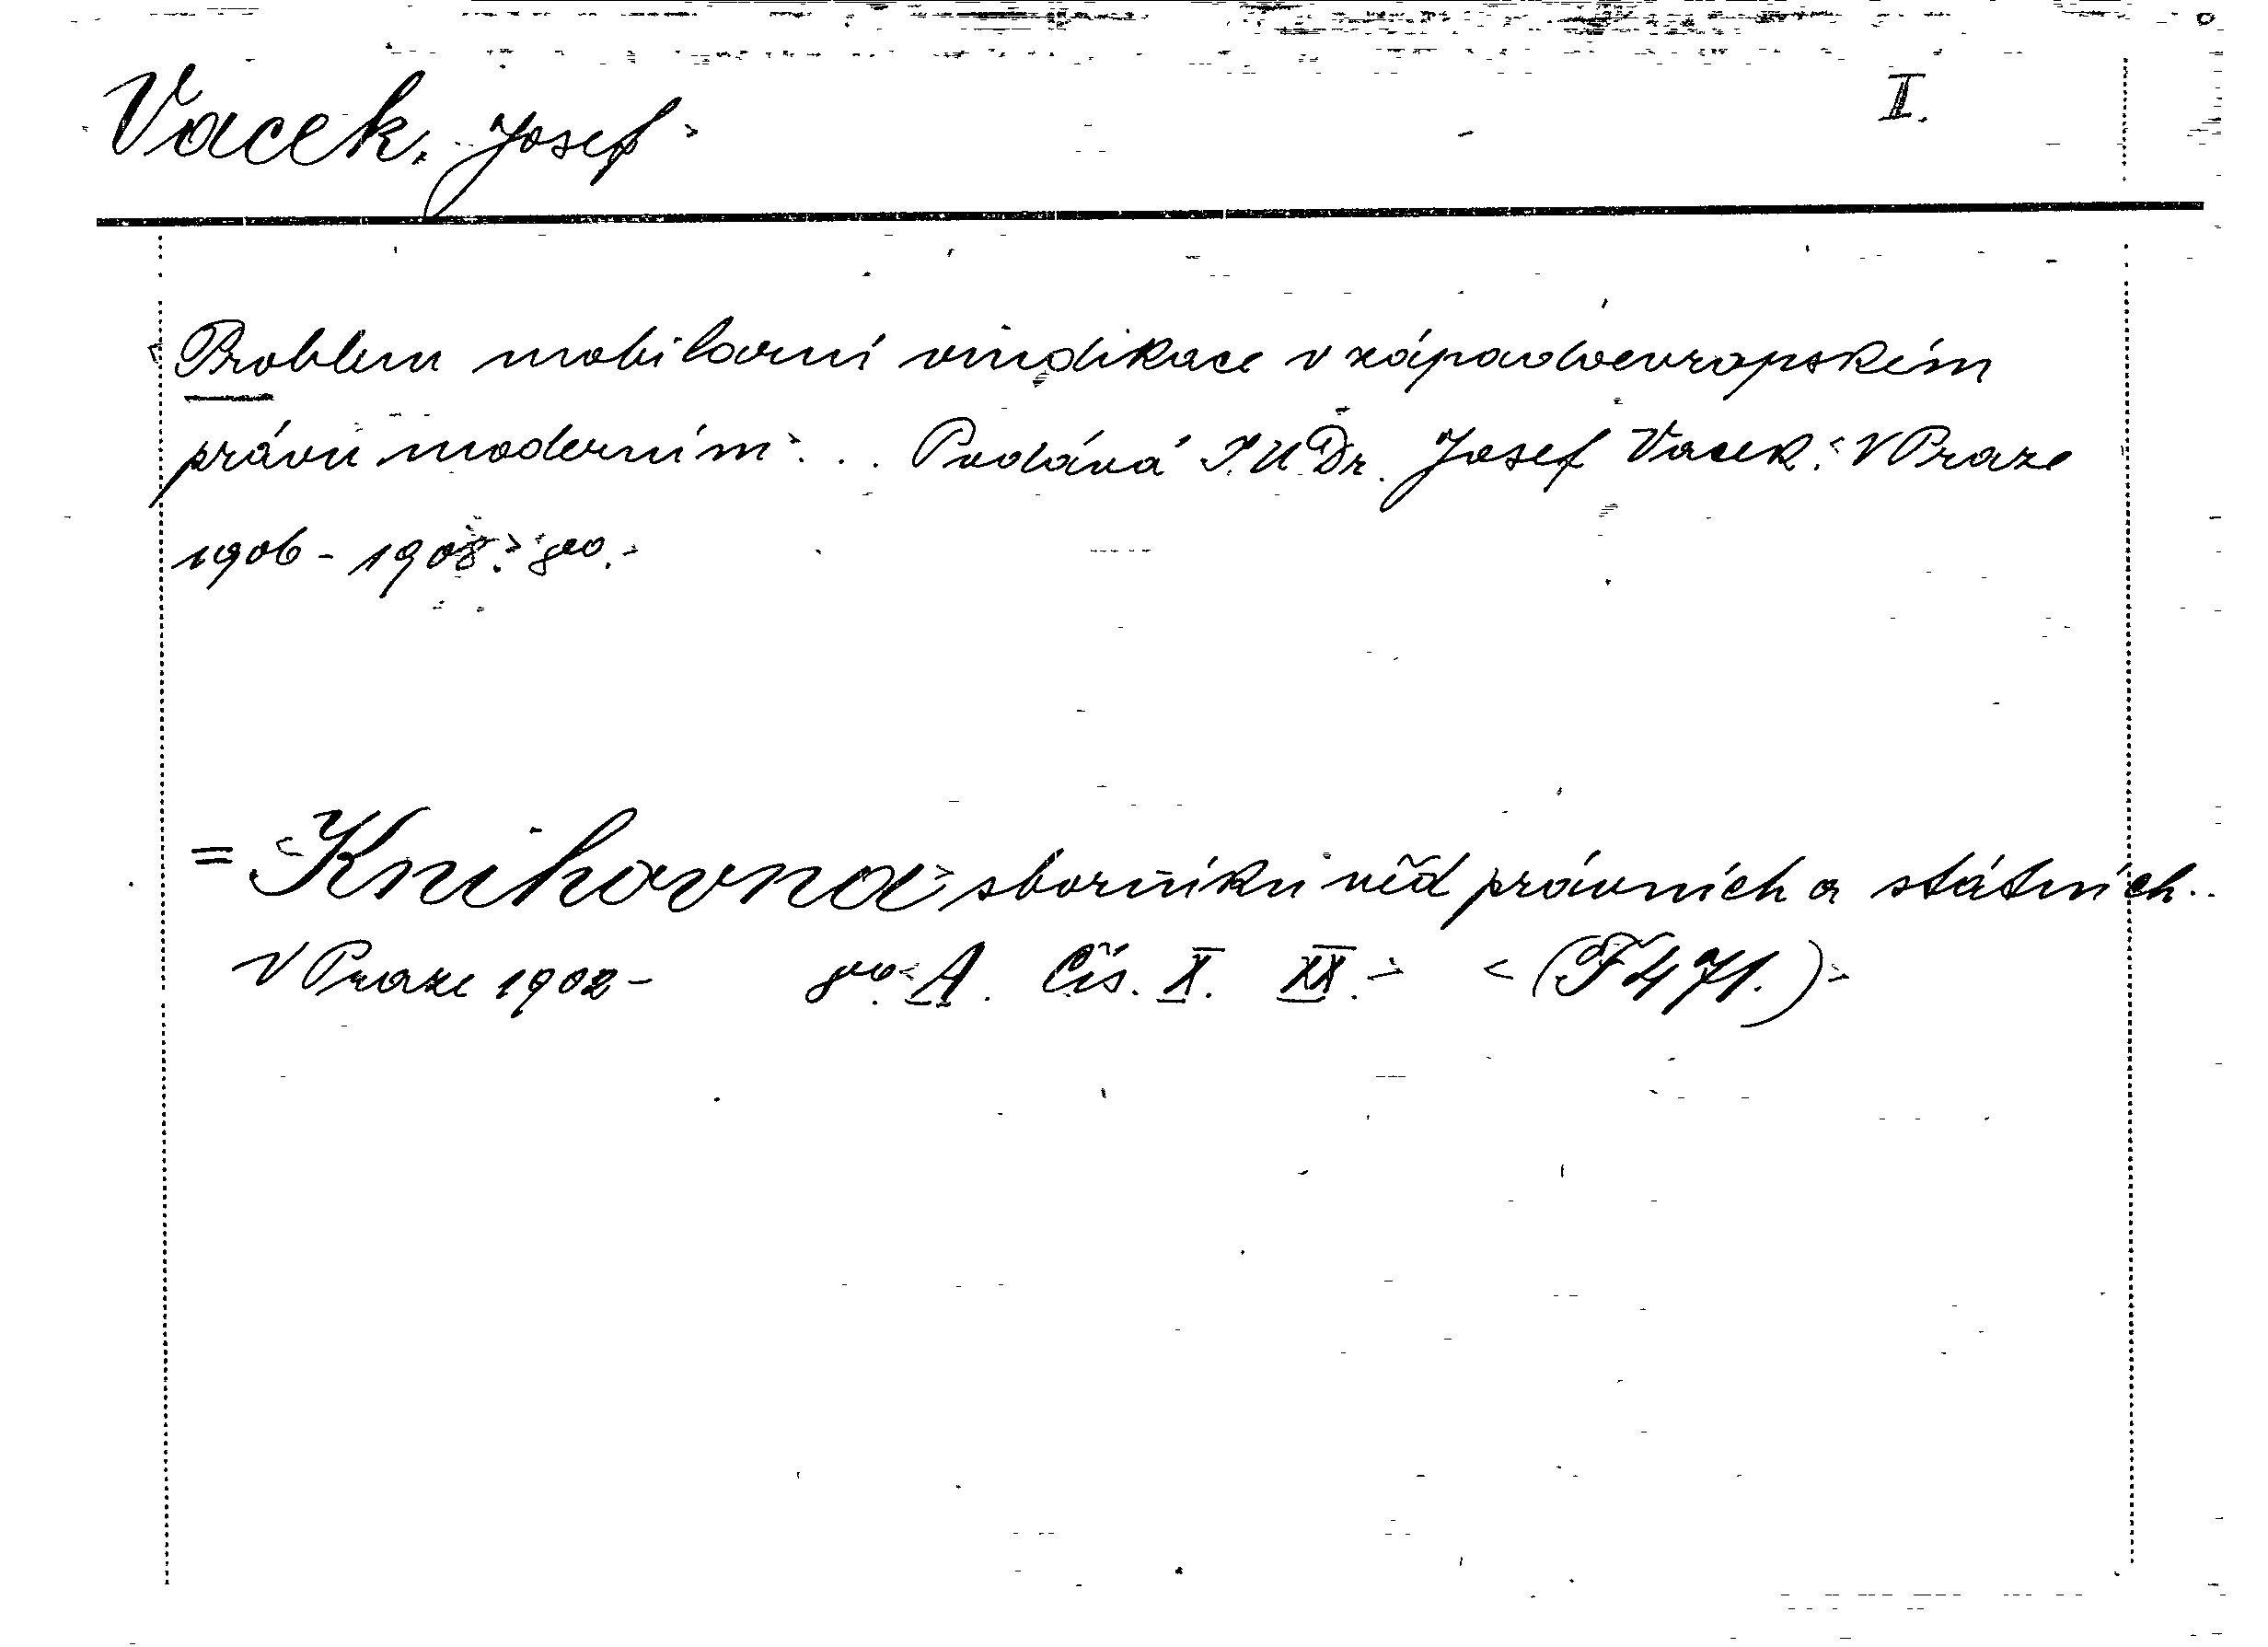 Vacek, Josef I.
Problem mobilarní vindikace v západoevropském
právu moderním... Podává J. U Dr. Josef Vacek. V Praze
1906 - 1908. 8vo.
= Knihovna sborníku věd právních a státních..
V Praze 1902 - 8vo. A. Čís. X. XX. (F 471.)